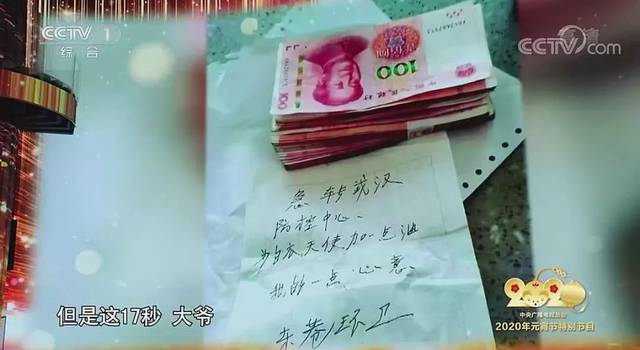 CCTV 1
综合
CCTV.com
100
急转武汉
防控中心、
为白衣天使加一点油
我的一点心意
东港环卫
但是这17秒 大爷
中央广播电视总台
2020年元宵节特别节目